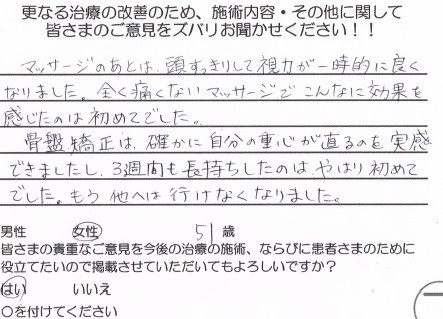 更なる治療の改善のため、施術内容・その他に関して
皆さまのご意見をズバリお聞かせください！！
マッサージのあとは、頭すっきりして視力が一時的に良く
なりました。全く痛くないマッサージでこんなに効果を
感じたのは初めてでした。
骨盤矯正は、確かに自分の重心が直るのを実感
できましたし、3週間も長持ちしたのは、やはり初めて
でした。もう他へは行けなくなりました。
男性 女性 51歳
皆さまの貴重なご意見を今後の治療の施術、ならびに患者さまのために
役立てたいので掲載させていただいてもよろしいですか？
はい いいえ
〇を付けてください